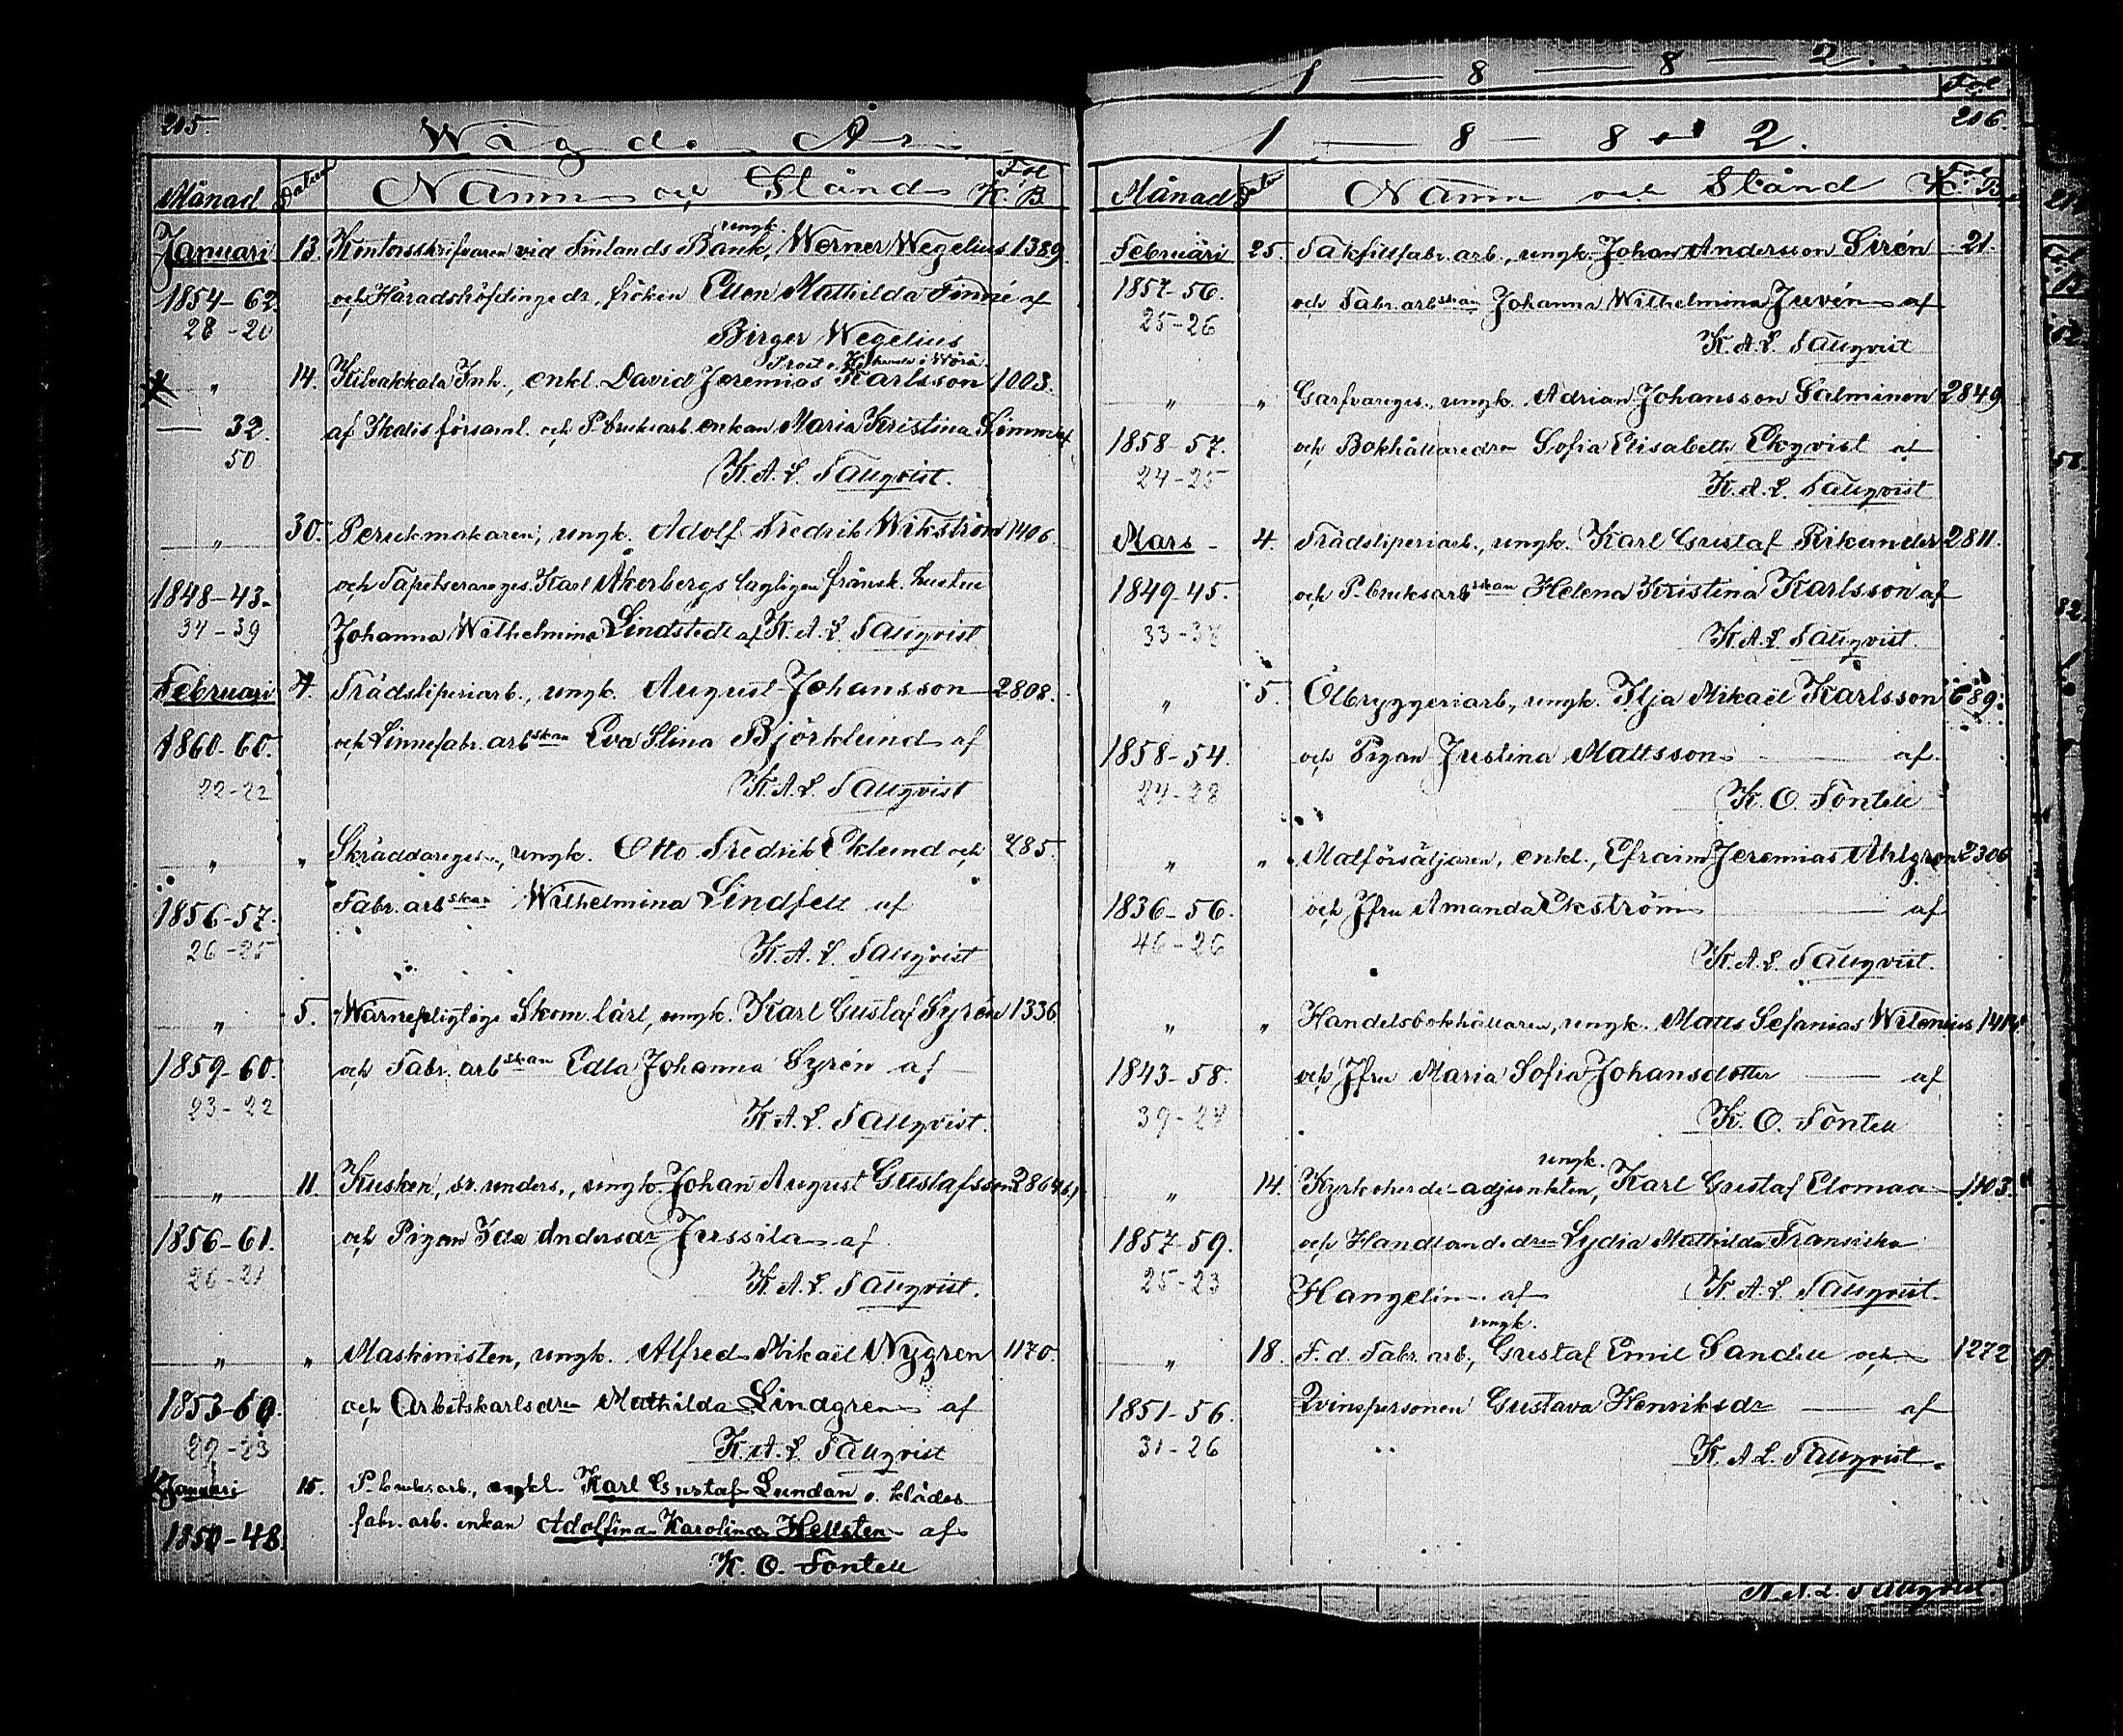 215.
Wigde År
Månad Datum Namn och Stånd Fol. K. B.
ungk.
Januari 13. Kontorsskrifvaren vid Finlands Bank, Werner Wegelius 1389
1854-62. och Häradshöfdingedr, fröken Ellen Mathilda Finné af
28-20 Birger Wegelius
Prost o. Kyrkoherde i Wörå
" 14. Kilvakkala Inh., enkl. David Jeremias Karlsson 1003.
— 32. af Ikalis församl. och P. bruksarb. enkan Maria Kristina Limm af
50 K. A. L. Tallqvist.
" 30. Perukmakaren, ungk. Adolf Fredrik Wikström 1406
1848-43. och Tapetserareges. Karl Åkerbergs lagligen frånsk. hustru
34-39 Johanna Wilhelmina Lindstedt af K. A. L. Tallqvist
Februari 4. Trädsliperiarb., ungk. August Johansson 2808.
1860-60. och Linnefabr. arbskan Eva Stina Björklund af
22-22 K. A. L. Tallqvist
" " Skräddareges., ungk. Otto Fredrik Eklund och 285.
1856-57. Fabr. arbskan Wilhelmina Lindfell af
26-25 K. A. L. Tallqvist
" 5. Wärnepligtige Skom. lärl., ungk. Karl Gustaf Syrén 1336
1859-60. och Fabr. arbskan Edla Johanna Syrén af
23-22 K. A. L. Tallqvist.
" 11. Kusken, sv. unders., ungk. Johan August Gustafsson 2864
1856-61. och Pigan Ida Andersdr Jussila af
26-21 K. A. L. Tallqvist.
" " Maskinisten, ungk. Alfred Mikaël Nygren 1170.
1853-60. och Arbetskarlsdrn Mathilda Lindgren af
29-23 K. A. L. Tallqvist
Januari 15. P. bruksarb., enkl. Karl Gustaf Lundan o. klädes
1850-48. fabr. arb. enkan Adolfina Karolina Hellsten af
K. O. Fontell
1 — 8 — 8 — 2.
Fol
216.
1 — 8 — 8 — 2.
Månad Datum Namn och Stånd Fol. K. B.
Februari 25. Takfiltfabr. arb., ungk. Johan Andersson Sirén 21.
1857-56. och Fabr. arbskan Johanna Wilhelmina Juvén af
25-26 K. A. L. Tallqvist
" " Garfvareges., ungk. Adrian Johansson Salminen 2849
1858-57. och Bokhållaredrn Sofia Elisabeth Ekqvist af
24-25 K. A. L. Tallqvist
Mars 4. Trädsliperiarb., ungk. Karl Gustaf Rikander 2811.
1849-45. och P. bruksarbskan Helena Kristina Karlsson af
33-38 K. A. L. Tallqvist.
" 5. Ölbryggeriarb., ungk. Ilja Mikaël Karlsson 689.
1858-54. och Pigan Justina Mattsson — af
24-28 K. O. Fontell
" " Matförsäljaren, enkl., Efraim Jeremias Ahlgren 2306
1836-56. och Jfru Amanda Ekström — af
46-26 K. A. L. Tallqvist.
" " Handelsbokhållaren, ungk. Matts Sefanias Witenius
1843-58. och Jfru Maria Sofia Johansdotter — af
39-24 K. O. Fontell
ungk.
" 14. Kyrkoherde-adjunkten, Karl Gustaf Elomaa 1103.
1857-59. och Handlandedrn Lydia Mathilda Fransiska
25-23 Hangelin af K. A. L. Tallqvist.
ungk.
" 18. F. d. Fabr. arb., Gustaf Emil Sandell och 1272
1851-56. Qvinspersonen Gustava Henriksdr — af
31-26 K. A. L. Tallqvist.
K. A. L. Tallqvist.